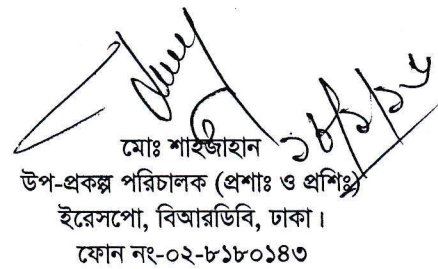 মোঃ শাহজাহান
উপ-প্রকল্প পরিচালক (প্রশাঃ ও প্রশিঃ)
ইরেসপো, বিআরডিবি, ঢাকা।
ফোন নং-০২-৮১৮০১৪৩